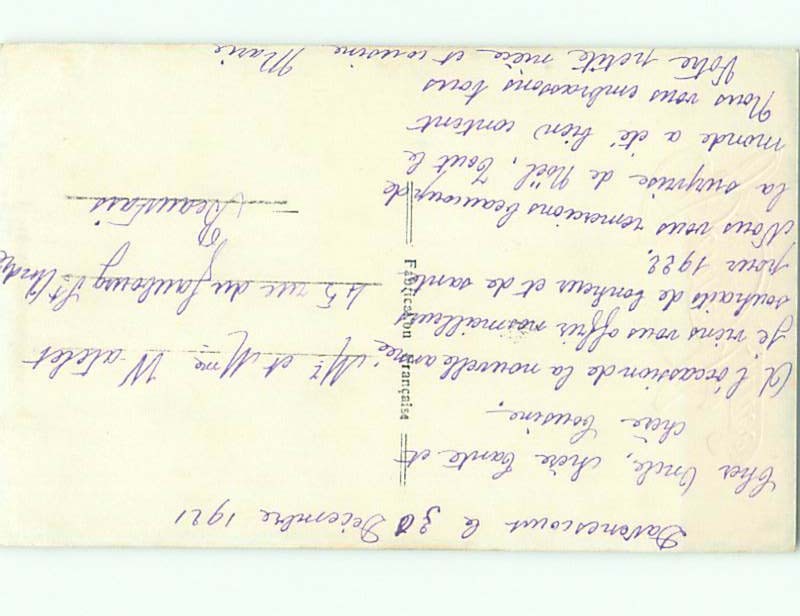 Davenescourt le 30 Décembre 1921
Cher Oncle, chère Tante et
chère Cousine.
A l'occassion de la nouvelle année
je viens vous offrir nos meilleurs
souhaits de bonheur et de santé
pour 1922.
Nous vous remercions beaucoup de
la surprise de Noël, tout le
monde a été bien content
Nous vous embrassons tous
Votre petite nièce et cousine Marie
Fabrication Française
Mr et Mme Watelet
45 rue du faubourg St André
Beauvais